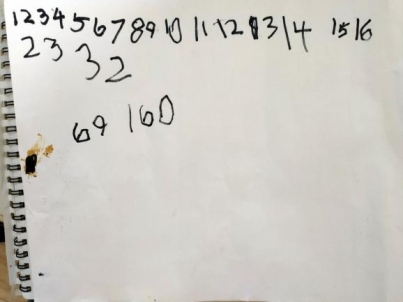 1 2 3 4 5 6 7 8 9 10 11 12 13 14 15 16
23 32
69 160